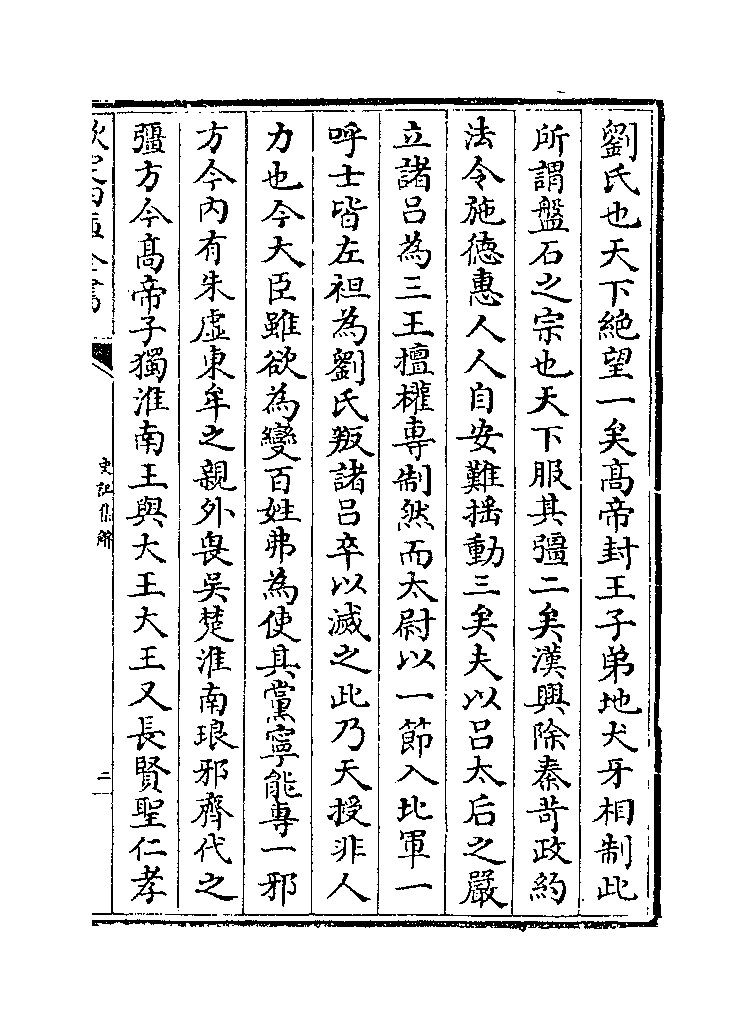 劉氏也天下絶望一矣髙帝封王子弟地犬牙相制此
所謂盤石之宗也天下服其彊二矣漢興除秦苛政約
法令施徳惠人人自安難揺動三矣夫以吕太后之嚴
立諸吕為三王擅權專制然而太尉以一節入北軍一
呼士皆左袒為劉氏叛諸吕卒以滅之此乃天授非人
力也今大臣雖欲為變百姓弗為使其黨寧能專一邪
方今内有朱虚東牟之親外畏吴楚淮南琅邪齊代之
彊方今髙帝子獨淮南王與大王大王又長賢聖仁孝
欽定四庫全書
史記集解
二